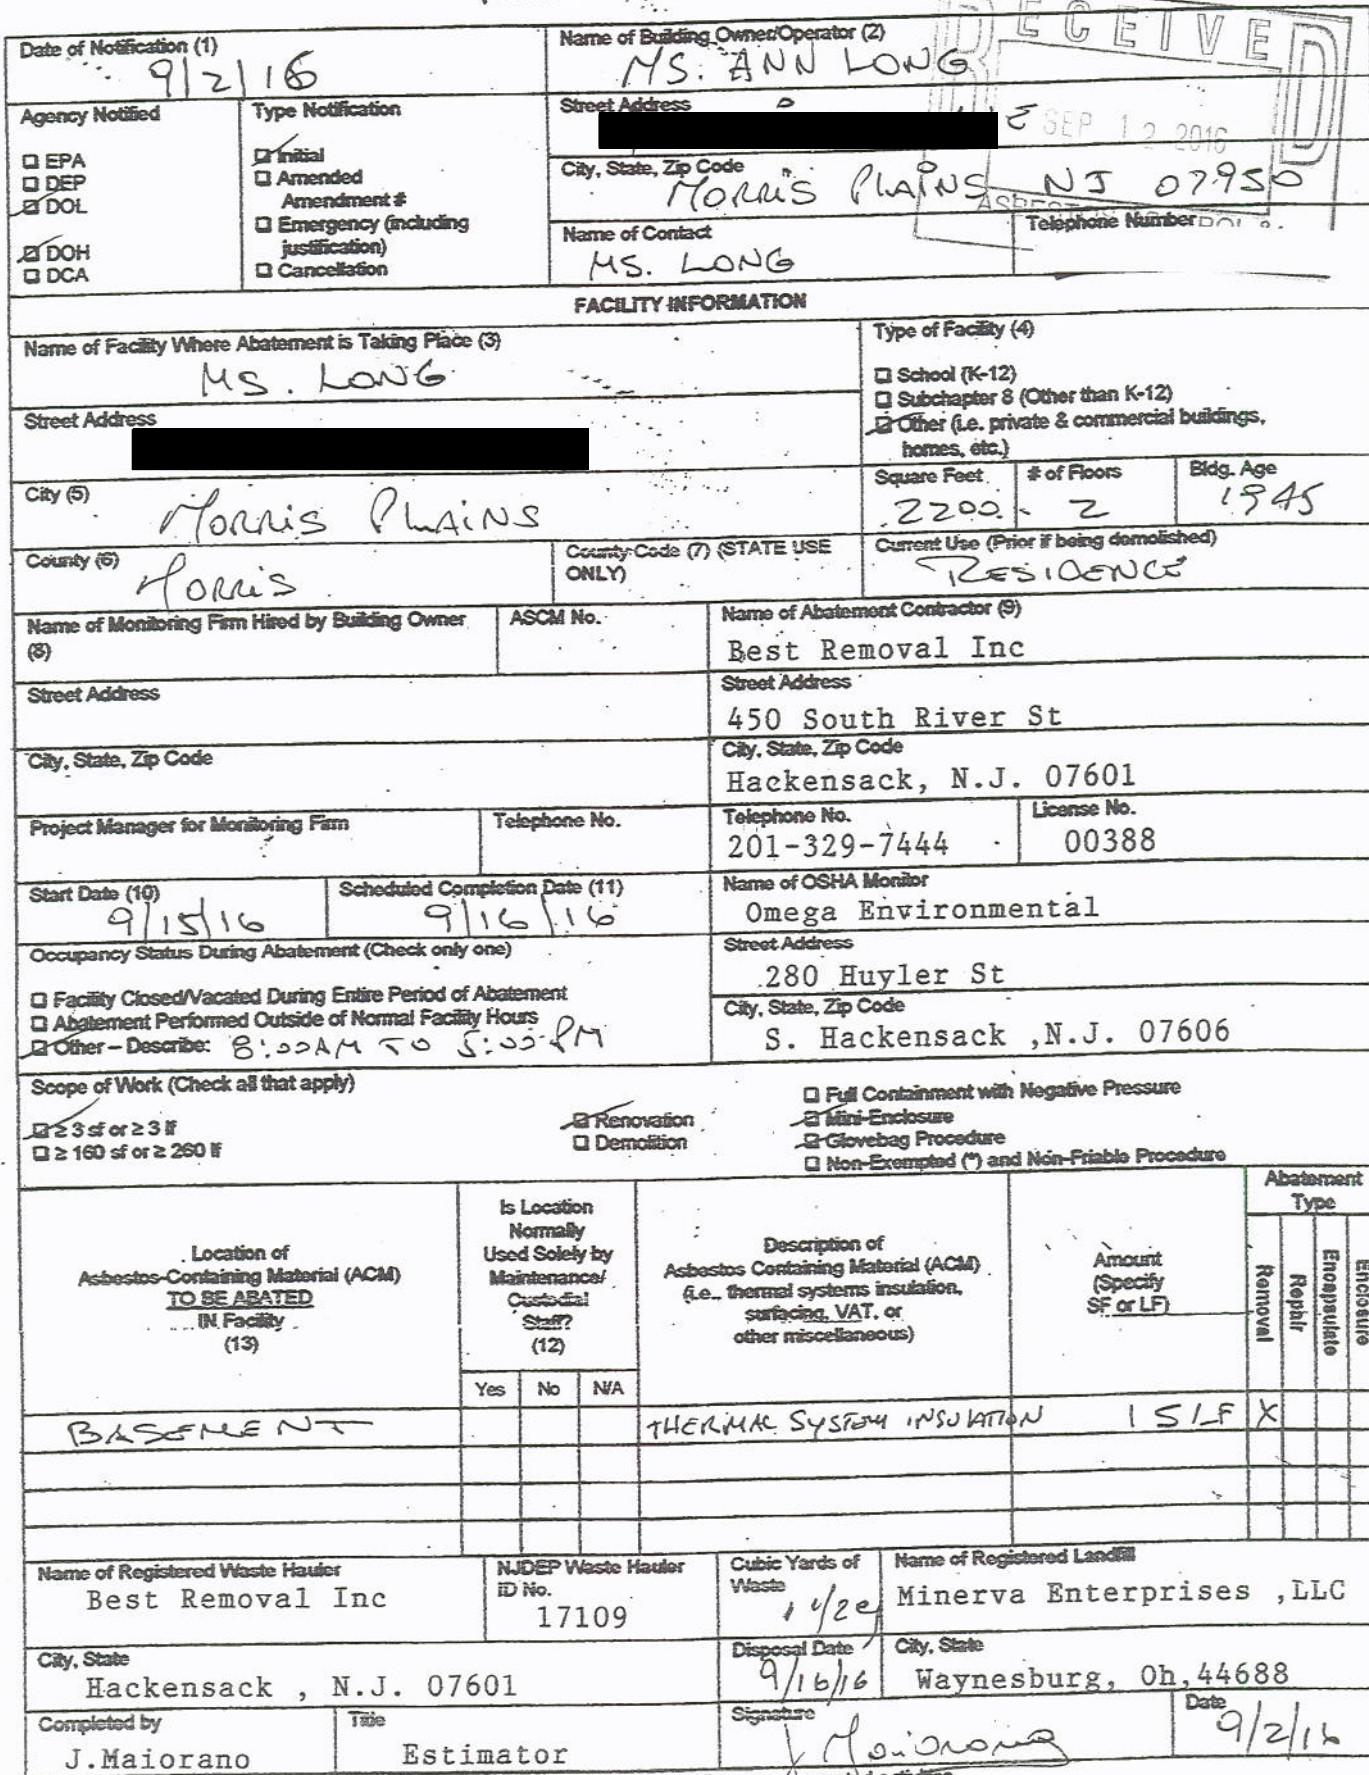 RECEIVED
Date of Notification (1)
9/2/16
Name of Building Owner/Operator (2)
MS. ANN LONG
Agency Notified
☐ EPA
☐ DEP
☑ DOL
☑ DOH
☐ DCA
Type Notification
☑ Initial
☐ Amended
Amendment #
☐ Emergency (including
justification)
☐ Cancellation
Street Address
E
SEP 12 2016
City, State, Zip Code
MORRIS PLAINS NJ 07950
Name of Contact
MS. LONG
Telephone Number
FACILITY INFORMATION
Name of Facility Where Abatement is Taking Place (3)
MS. LONG
Type of Facility (4)
☐ School (K-12)
☐ Subchapter 8 (Other than K-12)
☑ Other (i.e. private & commercial buildings,
homes, etc.)
Street Address
City (5)
MORRIS PLAINS
Square Feet
2200
# of Floors
2
Bldg. Age
1945
County (6)
MORRIS
County Code (7) (STATE USE
ONLY)
Current Use (Prior if being demolished)
RESIDENCE
Name of Monitoring Firm Hired by Building Owner
(8)
ASCM No.
Name of Abatement Contractor (9)
Best Removal Inc
Street Address
Street Address
450 South River St
City, State, Zip Code
City, State, Zip Code
Hackensack, N.J. 07601
Project Manager for Monitoring Firm
Telephone No.
Telephone No.
201-329-7444
License No.
00388
Start Date (10)
9/15/16
Scheduled Completion Date (11)
9/16/16
Name of OSHA Monitor
Omega Environmental
Occupancy Status During Abatement (Check only one)
☐ Facility Closed/Vacated During Entire Period of Abatement
☐ Abatement Performed Outside of Normal Facility Hours
☑ Other – Describe: 8:00AM TO 5:00 PM
Street Address
280 Huyler St
City, State, Zip Code
S. Hackensack ,N.J. 07606
Scope of Work (Check all that apply)
☑ ≥ 3 sf or ≥ 3 lf
☐ ≥ 160 sf or ≥ 260 lf
☑ Renovation
☐ Demolition
☐ Full Containment with Negative Pressure
☑ Mini-Enclosure
☑ Glovebag Procedure
☐ Non-Exempted (*) and Non-Friable Procedure
Location of
Asbestos-Containing Material (ACM)
TO BE ABATED
IN Facility
(13)
Is Location
Normally
Used Solely by
Maintenance/
Custodial
Staff?
(12)
Yes No N/A
Description of
Asbestos Containing Material (ACM)
(i.e., thermal systems insulation,
surfacing, VAT, or
other miscellaneous)
Amount
(Specify
SF or LF)
Abatement
Type
Removal
Repair
Encapsulate
Enclosure
BASEMENT THERMAL SYSTEM INSULATION 15 LF X
Name of Registered Waste Hauler
Best Removal Inc
NJDEP Waste Hauler
ID No.
17109
Cubic Yards of
Waste
Name of Registered Landfill
Minerva Enterprises ,LLC
City, State
Hackensack , N.J. 07601
Disposal Date
9/16/16
City, State
Waynesburg, Oh,44688
Completed by
J.Maiorano
Title
Estimator
Signature
J Maiorano
Date
9/2/16